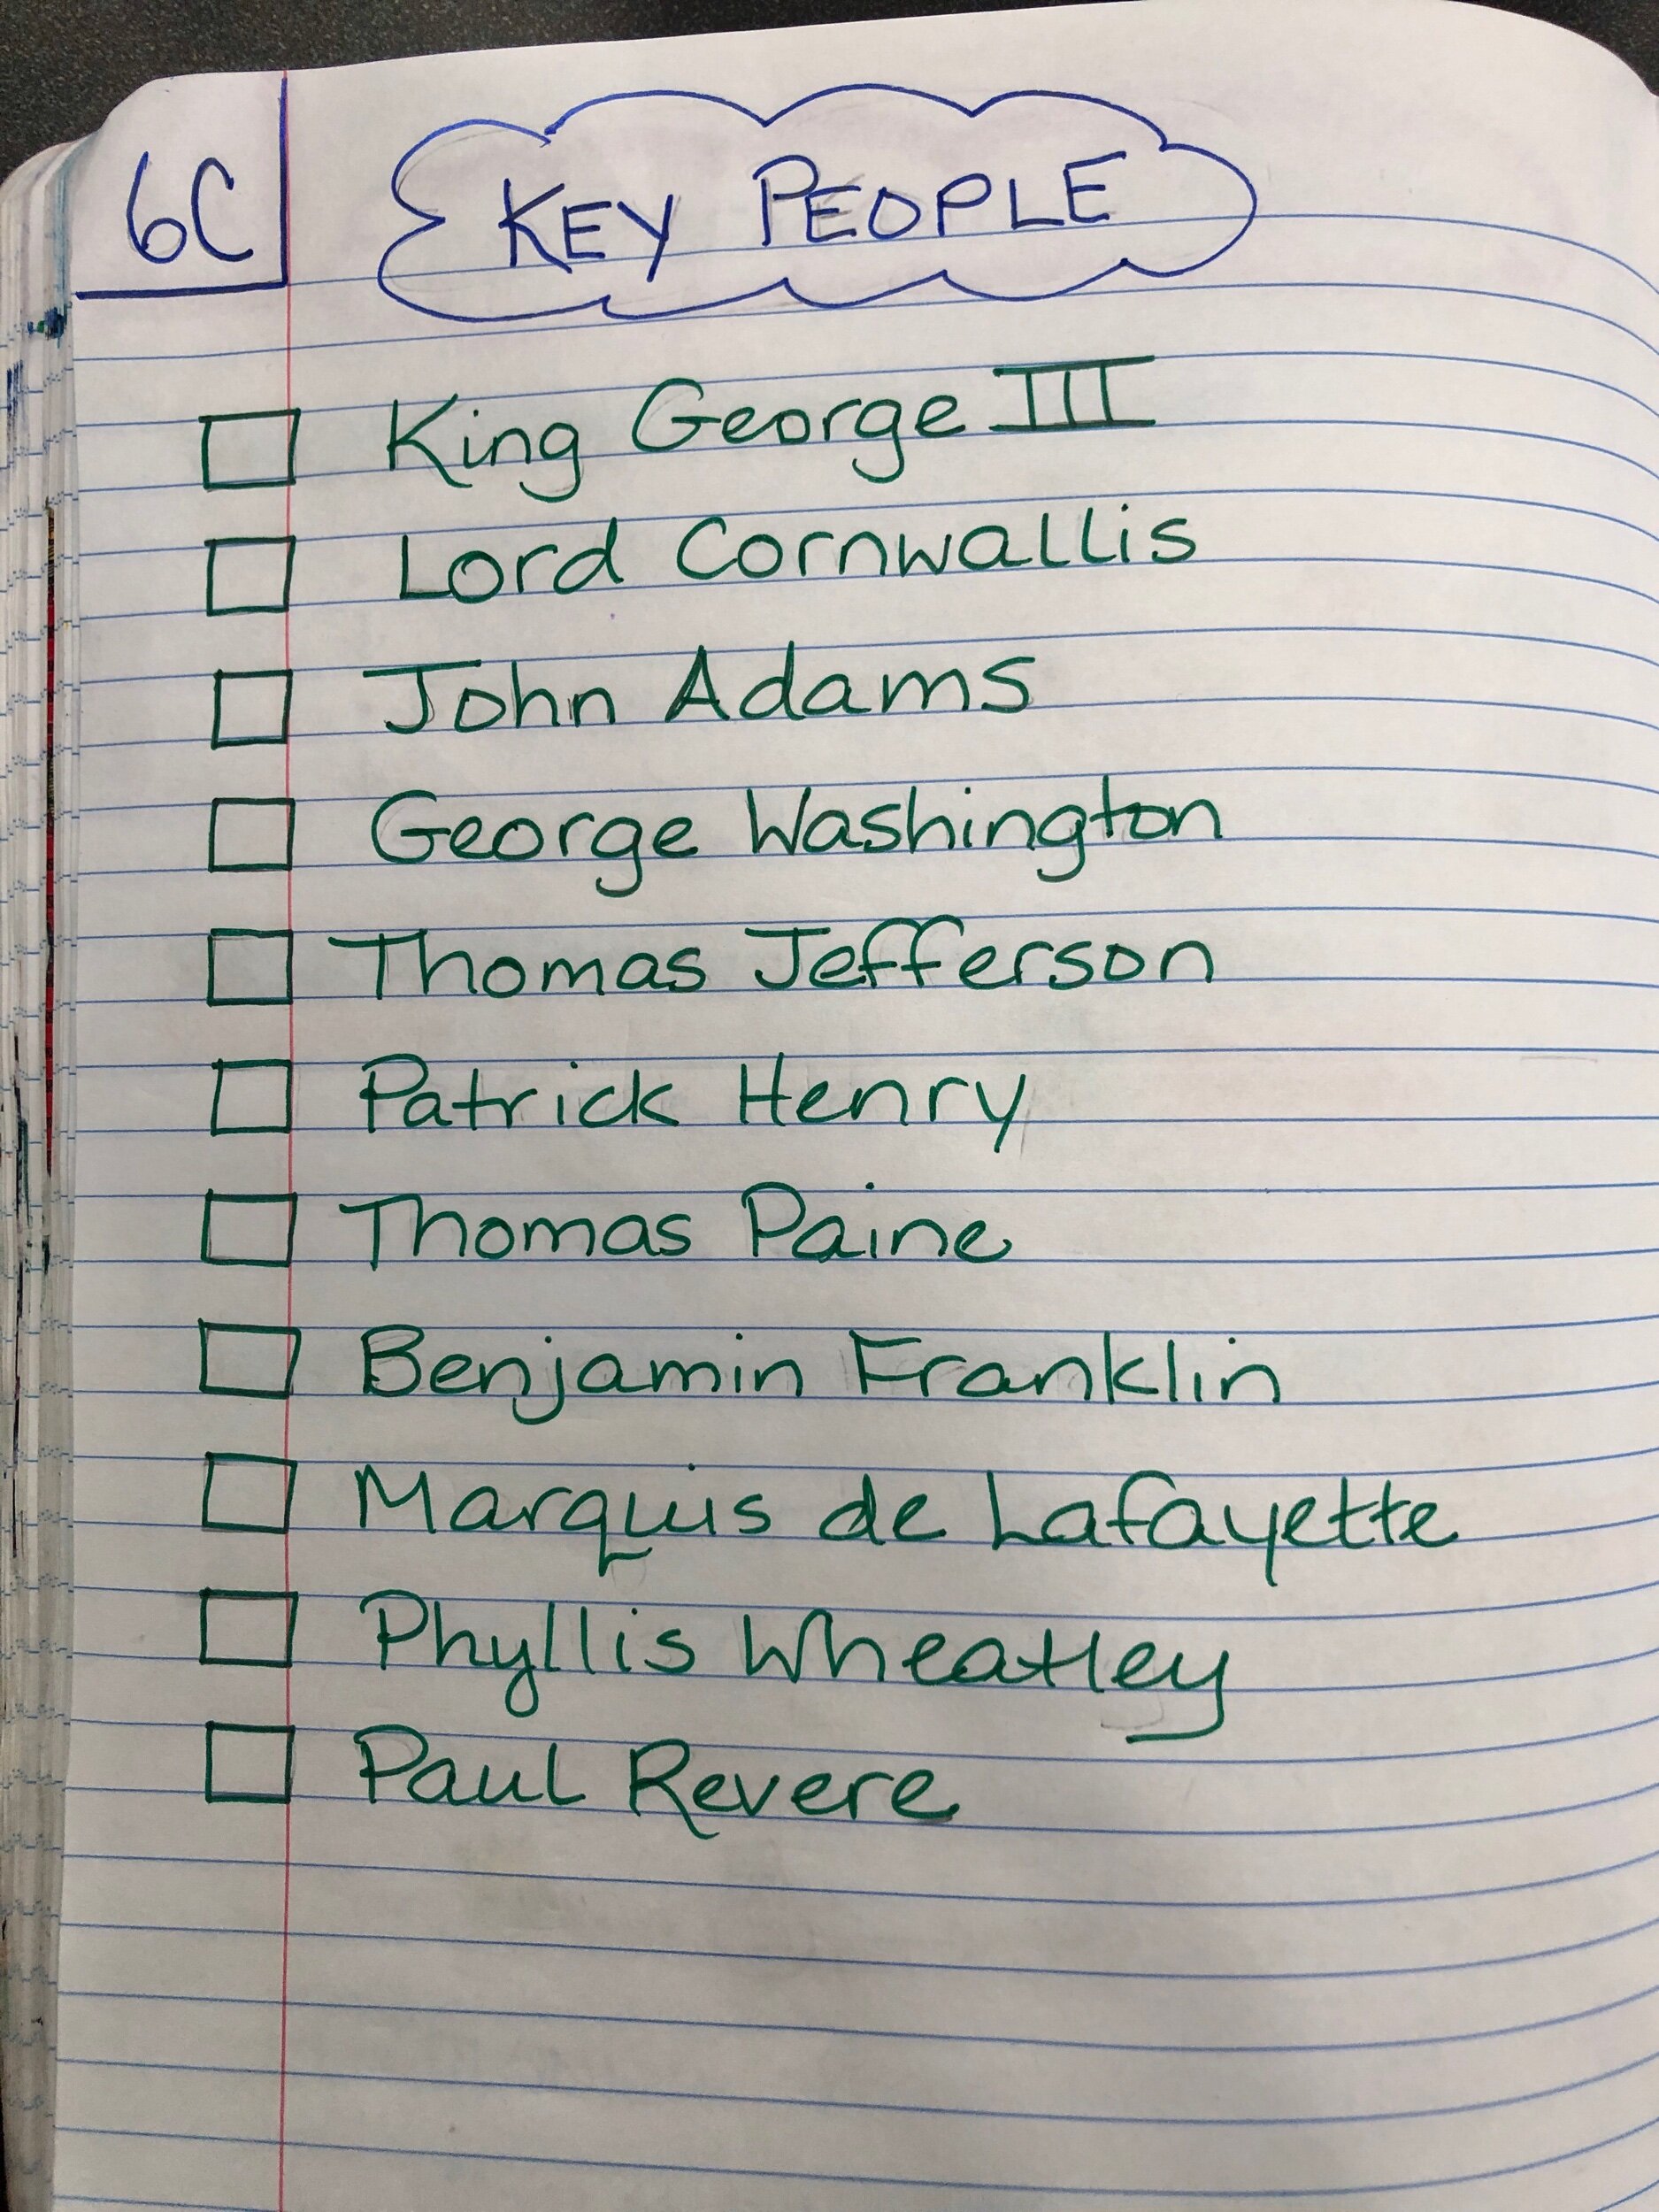 6C
KEY PEOPLE
King George III
Lord Cornwallis
John Adams
George Washington
Thomas Jefferson
Patrick Henry
Thomas Paine
Benjamin Franklin
Marquis de Lafayette
Phyllis Wheatley
Paul Revere